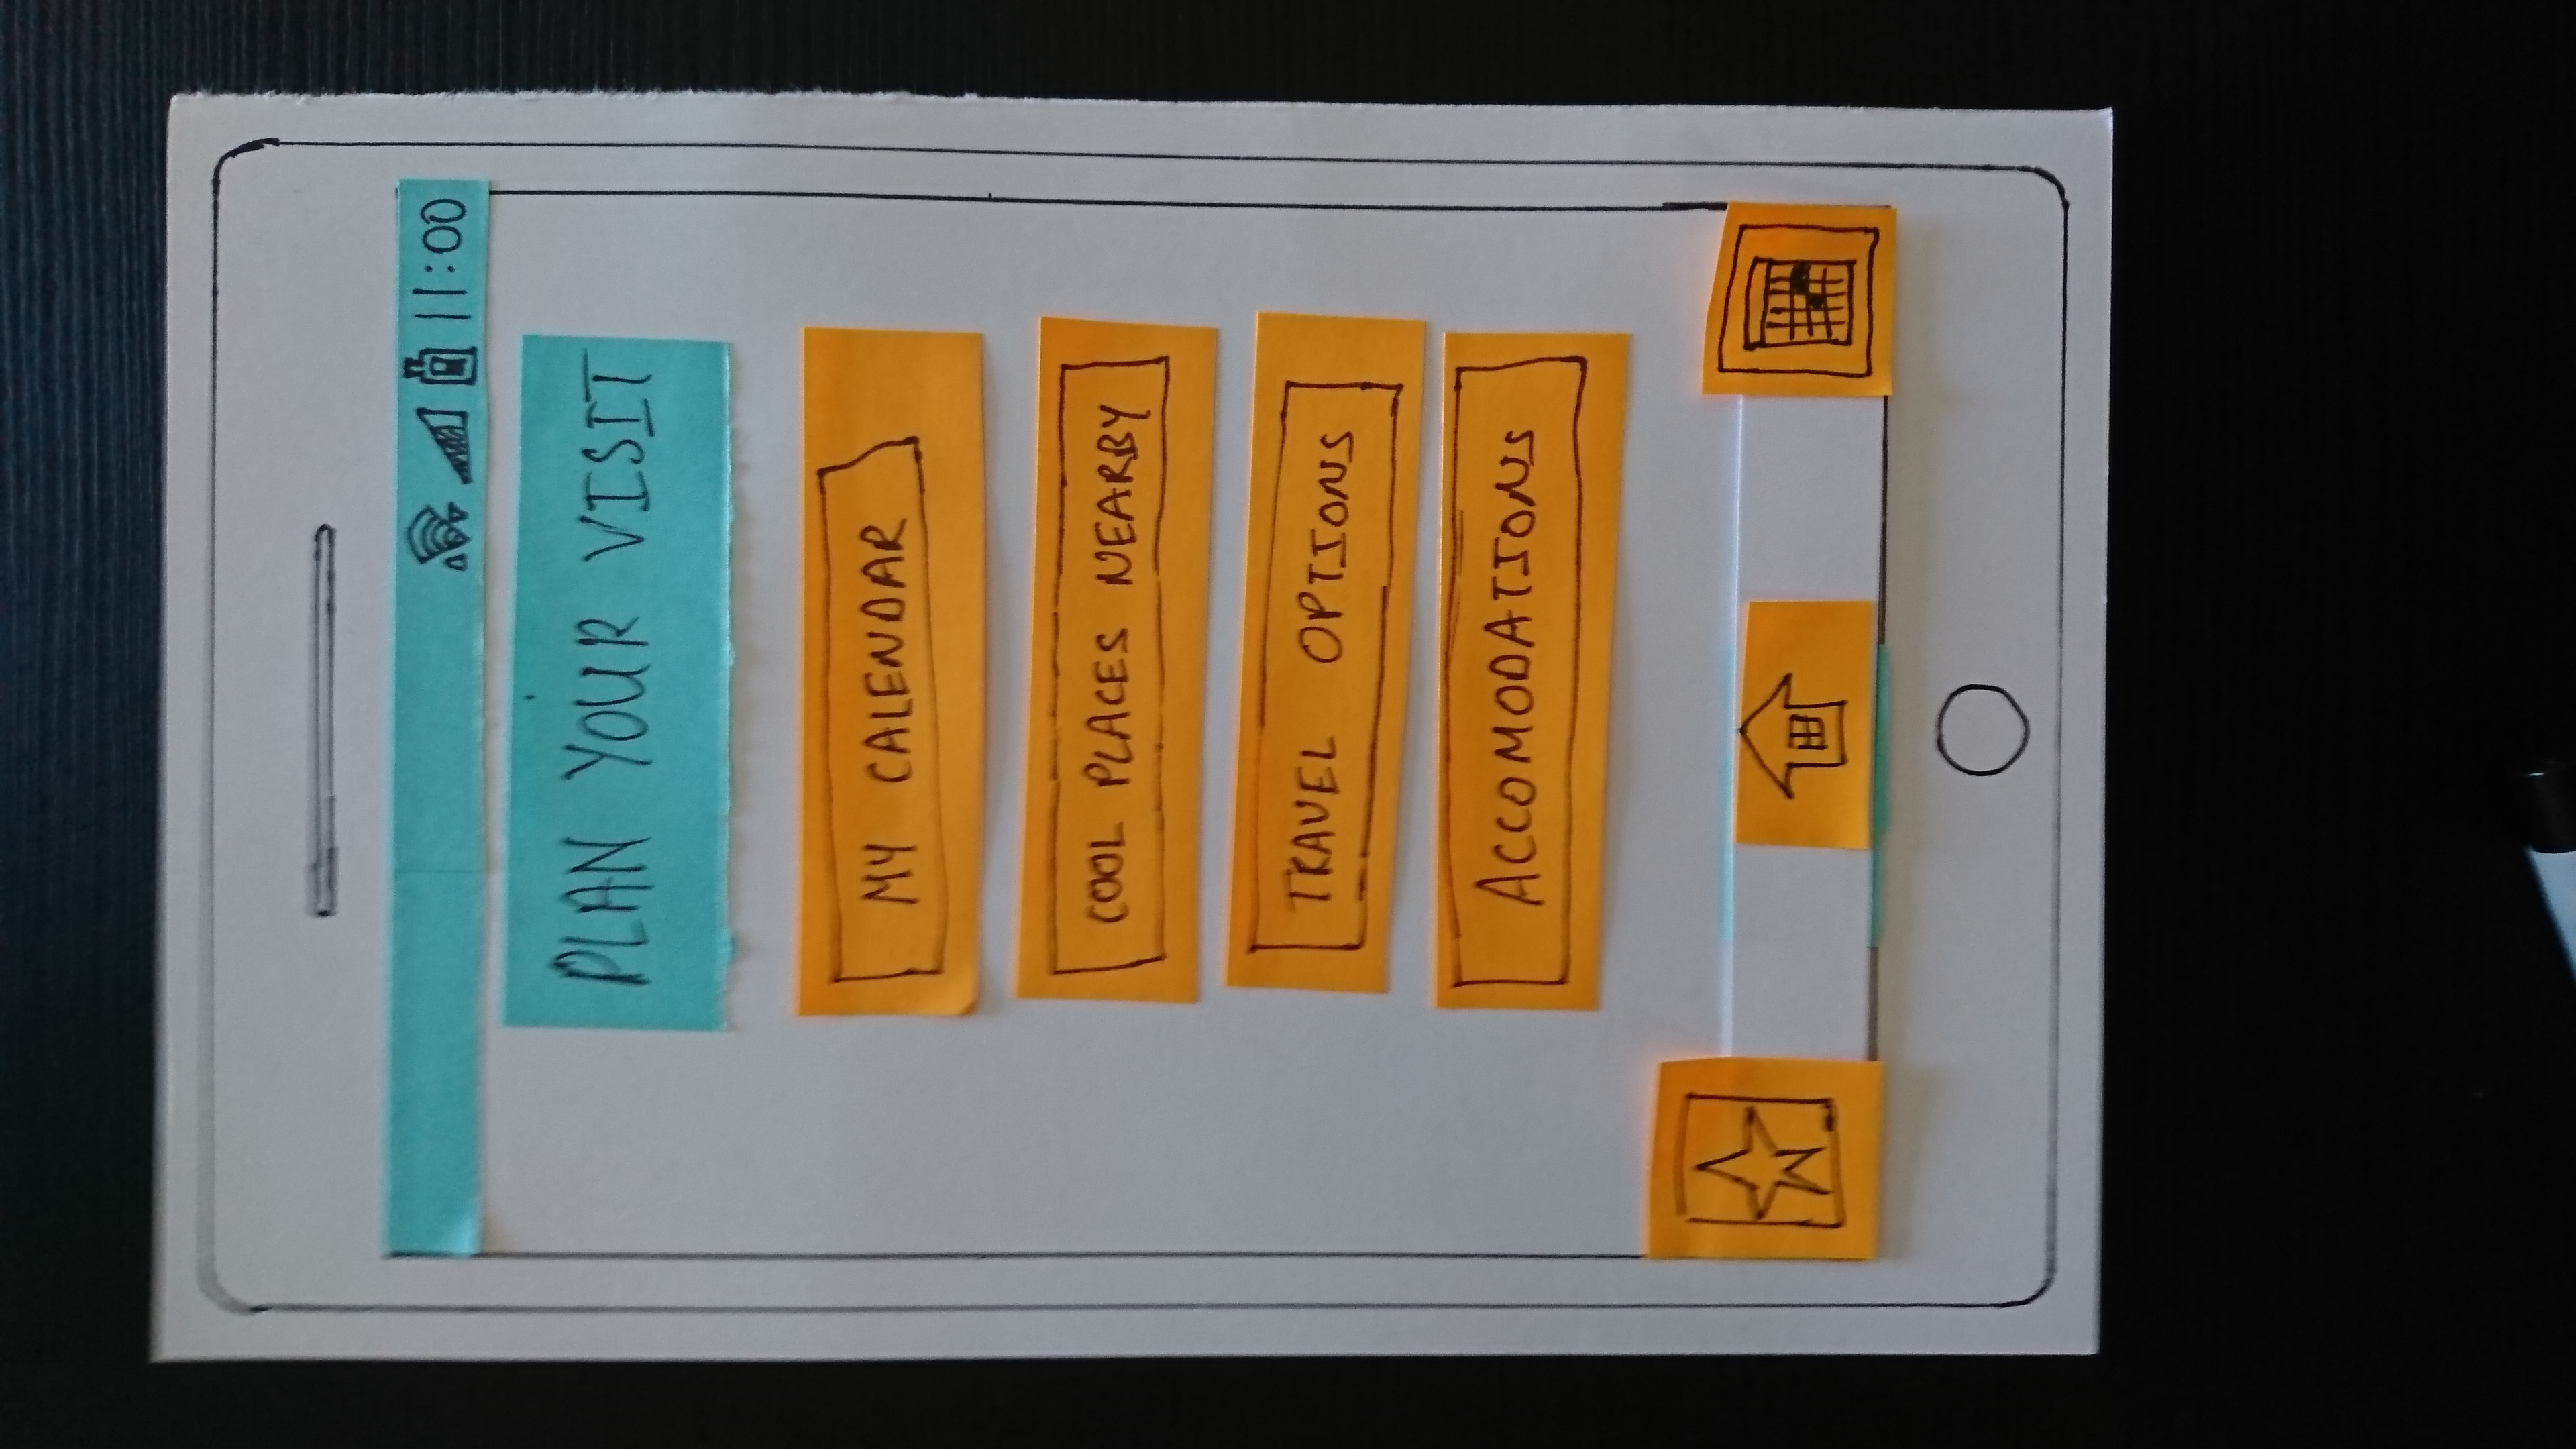 11:00
PLAN YOUR VISIT
MY CALENDAR
COOL PLACES NEARBY
TRAVEL OPTIONS
ACCOMODATIONS